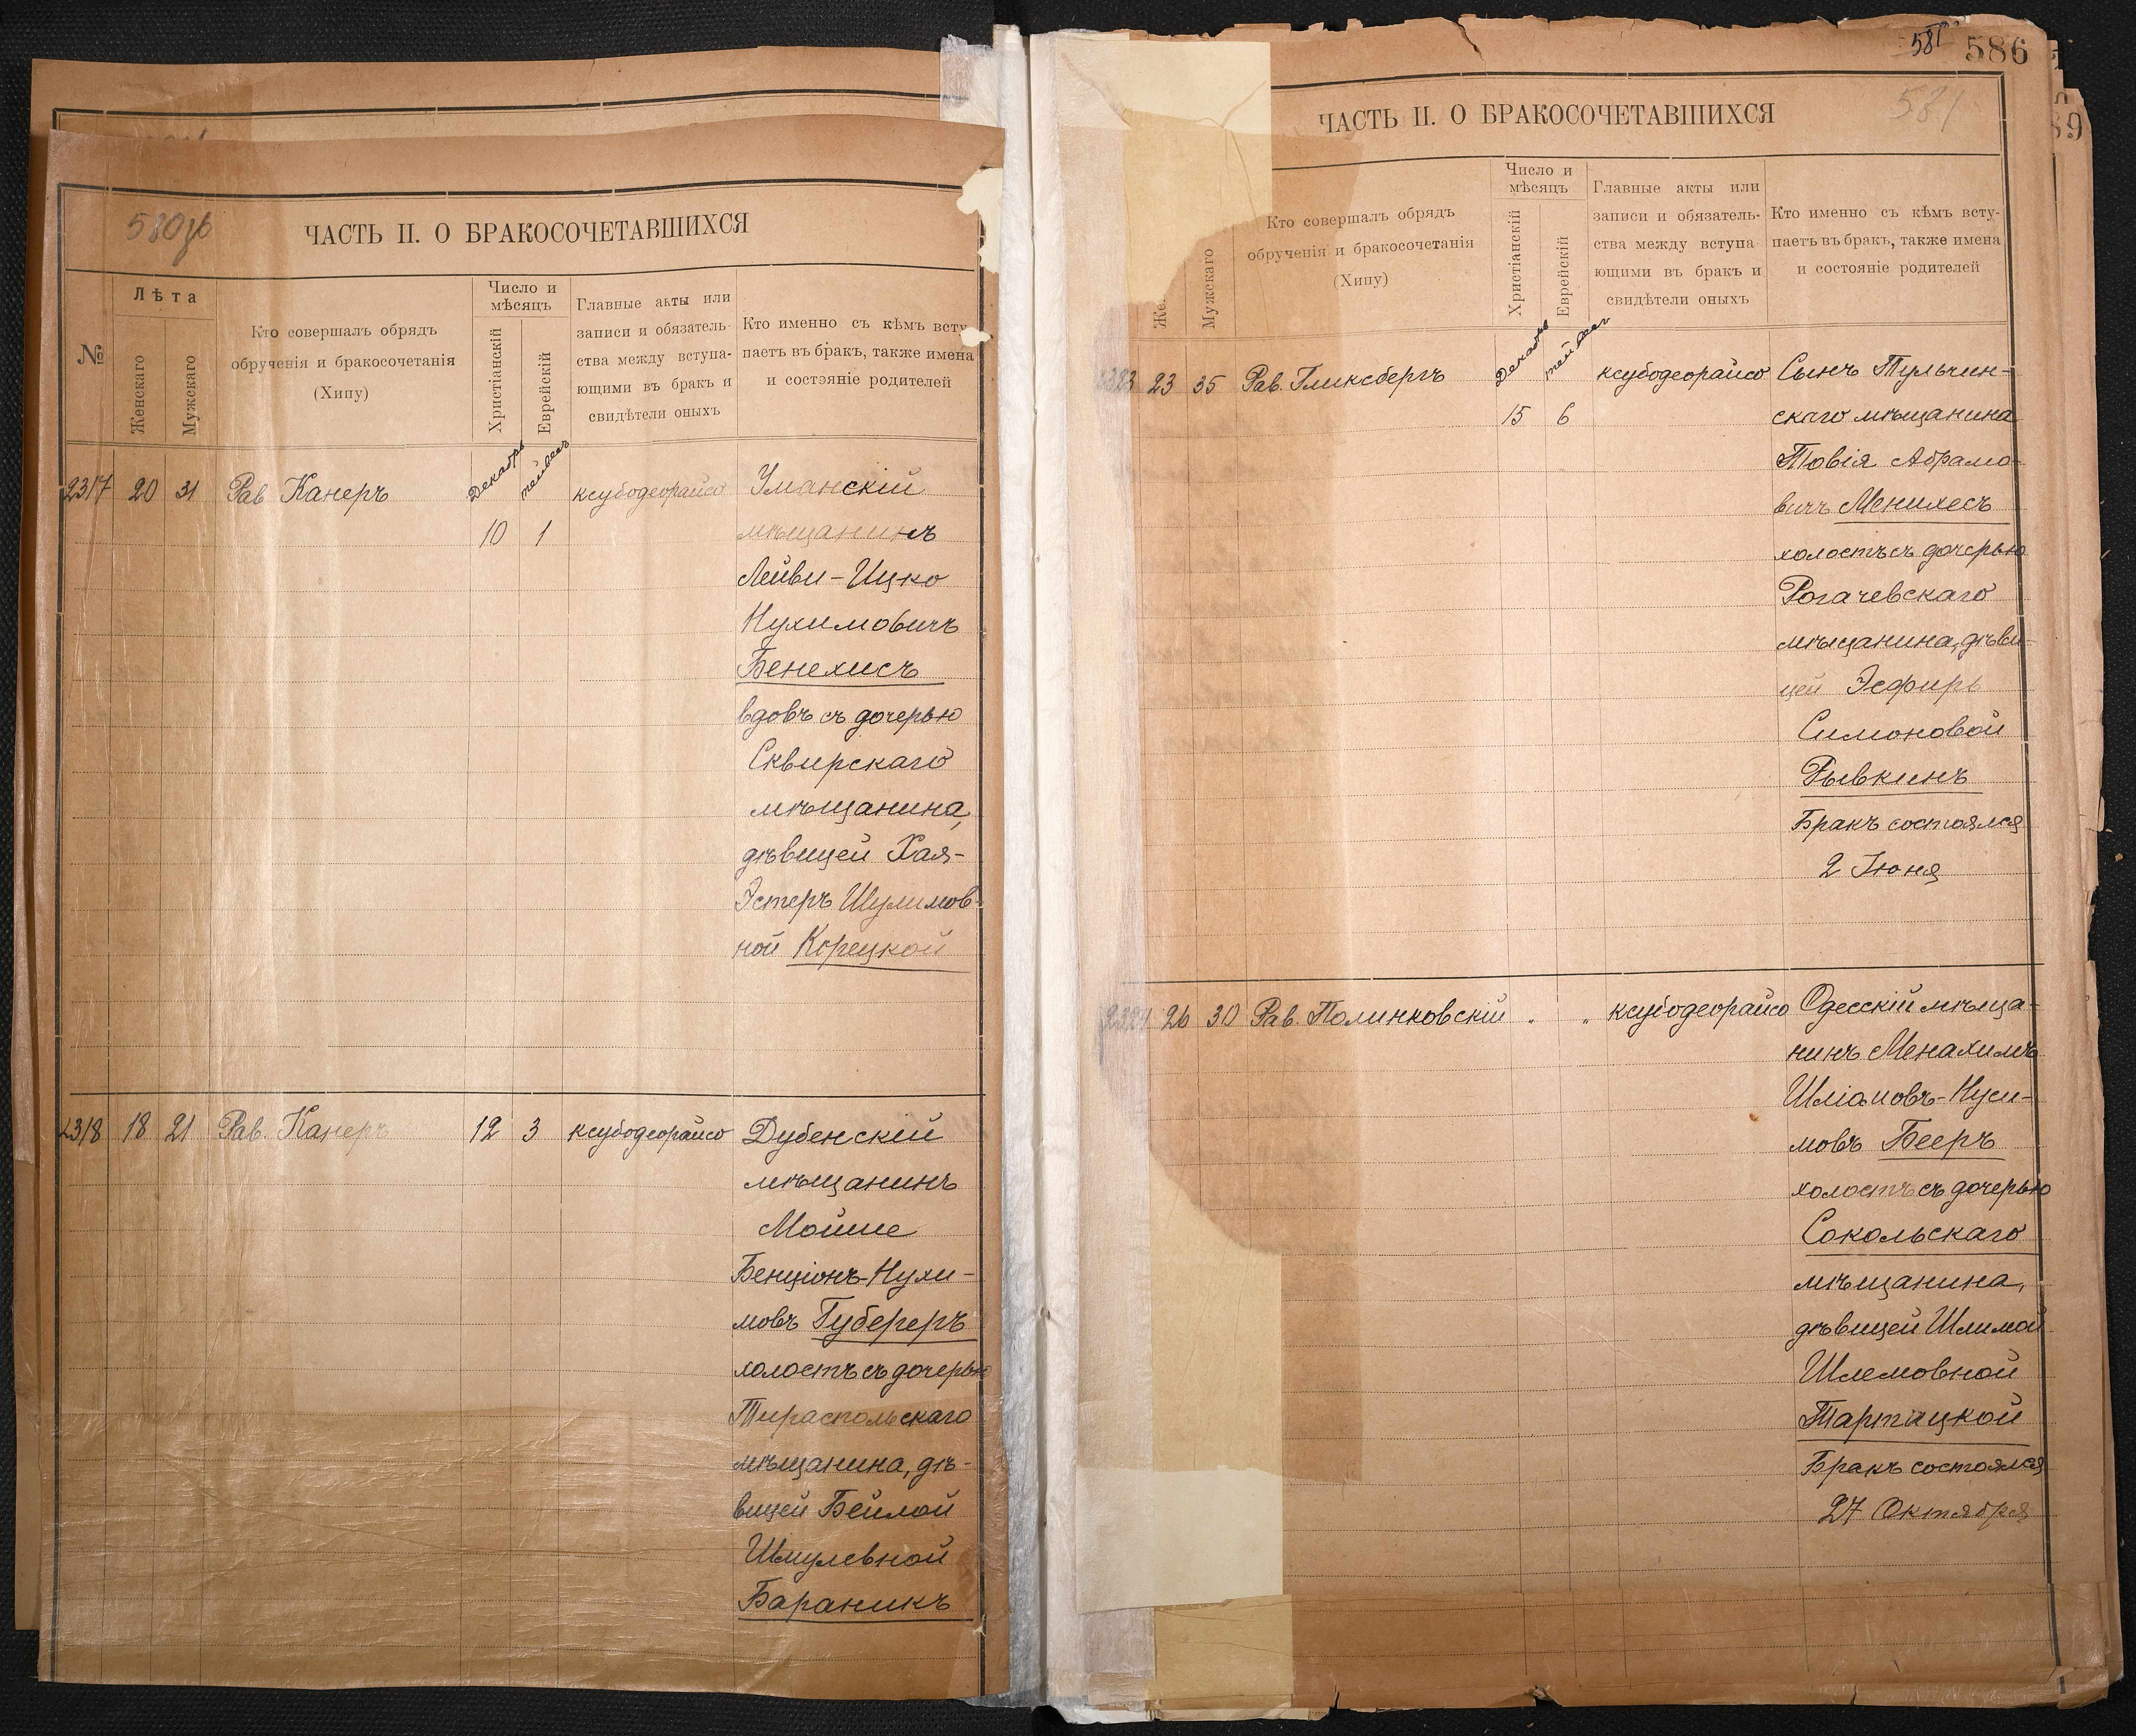 580об
ЧАСТЬ II. О БРАКОСОЧЕТАВШИХСЯ
№
Лѣта
Женскаго
Мужскаго
Кто совершалъ обрядъ
обрученія и бракосочетанія
(Хипу)
Число и
мѣсяцъ
Христіанскій
Еврейскій
Главные акты или
записи и обязатель-
ства между вступа-
ющими въ бракъ и
свидѣтели оныхъ
Кто именно съ кѣмъ всту-
паетъ въ бракъ, также имена
и состояніе родителей
2317 20 31 Рав Канеръ Декабрь тейвес ксубодеорайсо Уманскій
10 1 мѣщанинъ
Лейви-Ицко
Нухимовичъ
Бенехисъ
вдовъ съ дочерью
Сквирскаго
мѣщанина,
дѣвицей Хая-
Эстеръ Шулимов-
ной Корецкой
2318 18 21 Рав. Канеръ 12 3 ксубодеорайсо Дубенскій
мѣщанинъ
Мойше
Бенціонъ-Нухи-
мовъ Губереръ
холостъ съ дочерью
Тираспольскаго
мѣщанина, дѣ-
вицей Бейлой
Шмулевной
Бараникъ
581 586
581
ЧАСТЬ II. О БРАКОСОЧЕТАВШИХСЯ
Же
Мужскаго
Кто совершалъ обрядъ
обрученія и бракосочетанія
(Хипу)
Число и
мѣсяцъ
Христіанскій
Еврейскій
Главные акты или
записи и обязатель-
ства между вступа-
ющими въ бракъ и
свидѣтели оныхъ
Кто именно съ кѣмъ всту-
паетъ въ бракъ, также имена
и состояніе родителей
2323 23 35 Рав. Гликсбергъ Декабрь тейвес ксубодеорайсо Сынъ Тульчин-
15 6 скаго мѣщанина
Товія Абрамо-
вичъ Менихесъ
холостъ съ дочерью
Рогачевскаго
мѣщанина, дѣви-
цей Эсфирь
Симоновой
Рывкинъ
Бракъ состоялся
2 Іюня
2324 26 30 Рав. Полинковскій " " ксубодеорайсо Одесскій мѣща-
нинъ Менахимъ
Шліомовъ-Нуси-
мовъ Бееръ
холостъ съ дочерью
Сокольскаго
мѣщанина,
дѣвицей Шлимой
Шлемовной
Тартацкой
Бракъ состоялся
27 Октября